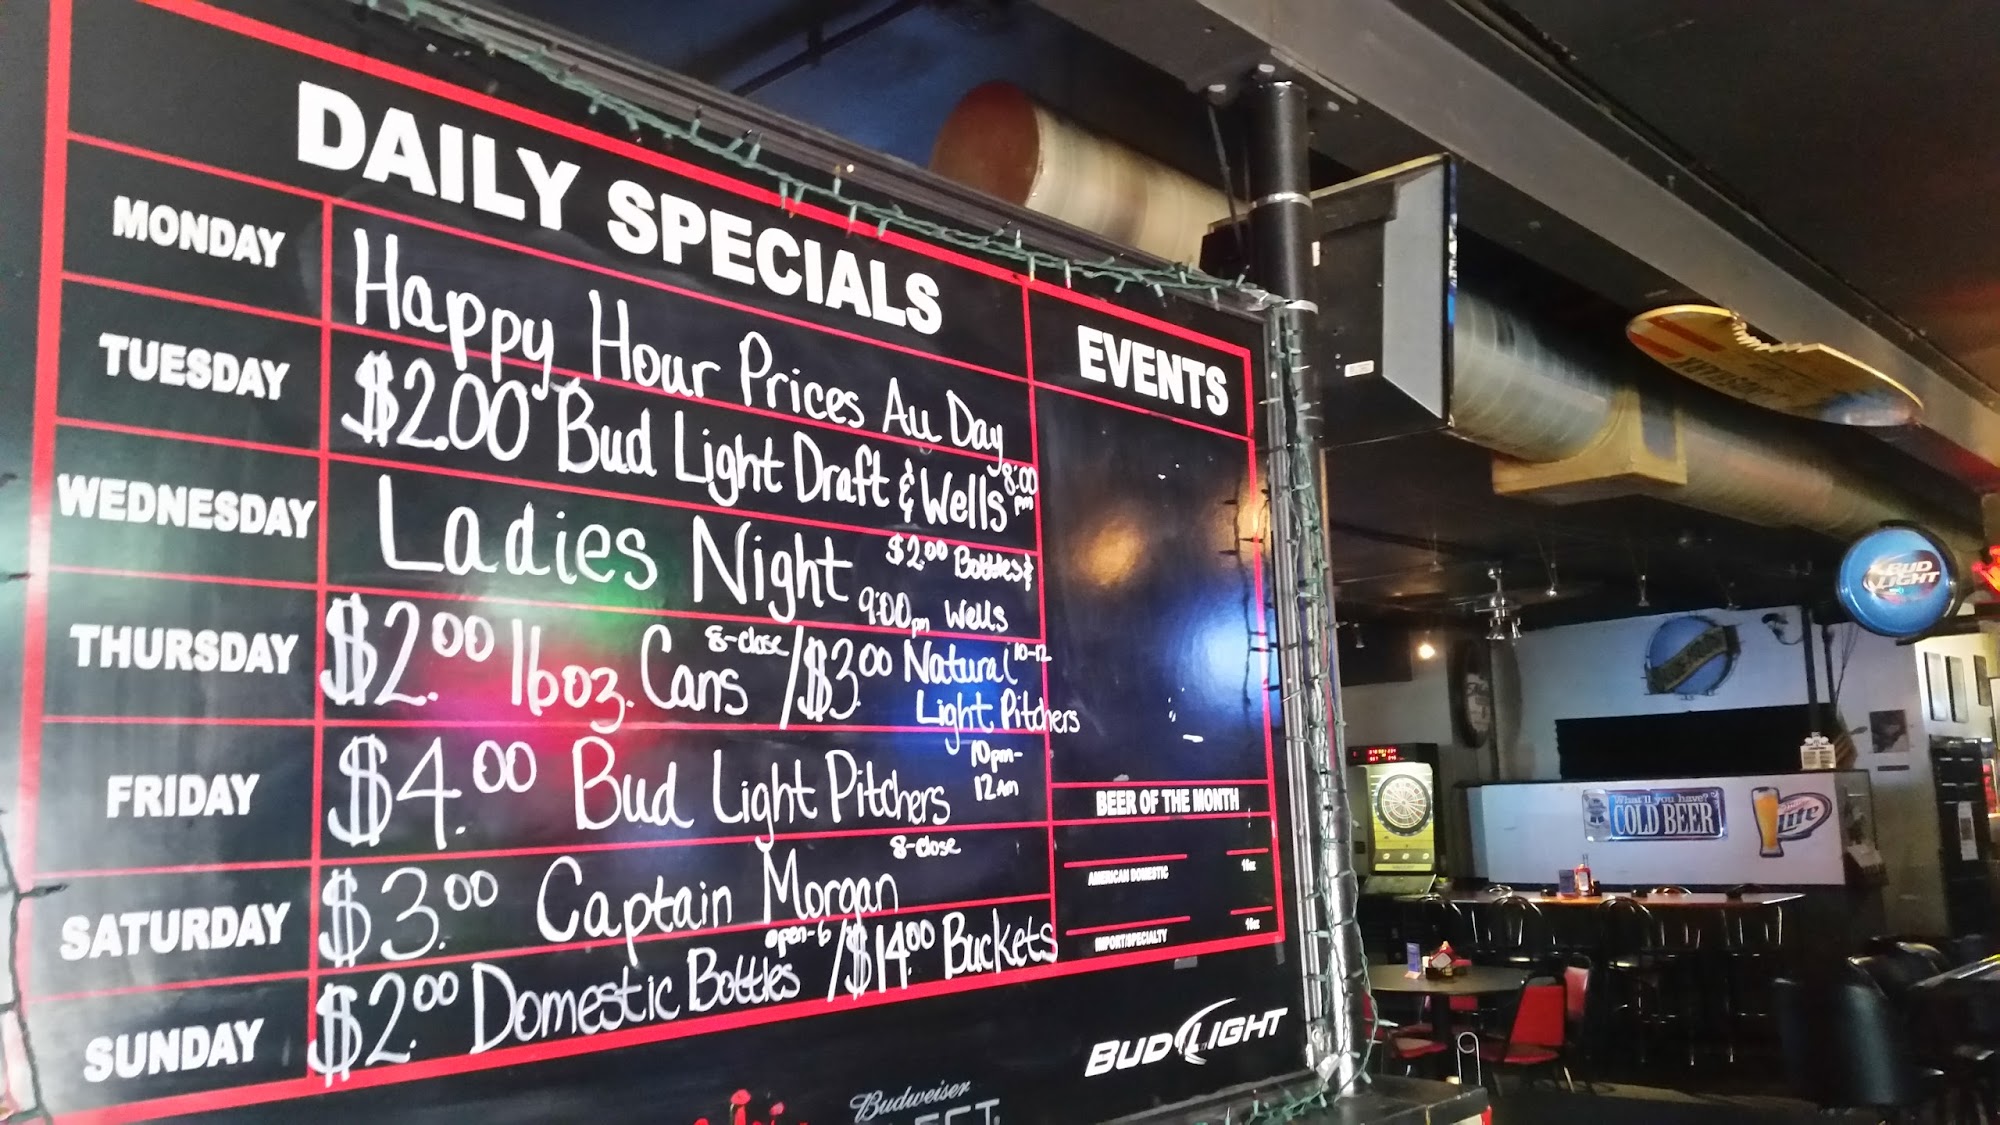 DAILY SPECIALS
EVENTS
MONDAY
Happy Hour Prices All Day
TUESDAY
$2.00 Bud Light Draft & Wells 8:00 pm
WEDNESDAY
Ladies Night $2.00 Bottles &
9:00pm Wells
THURSDAY
$2.00 16oz. Cans 8-close / $3.00 Natural 10-12
Light Pitchers
FRIDAY
$4.00 Bud Light Pitchers 10pm-
12am
SATURDAY
$3.00 Captain Morgan 8-close
SUNDAY
$2.00 Domestic Bottles open-6 / $14.00 Buckets
BEER OF THE MONTH
AMERICAN DOMESTIC
16oz
IMPORT/SPECIALTY
16oz
BUD LIGHT
Budweiser
BUD LIGHT
What'll you have?
COLD BEER
Lite